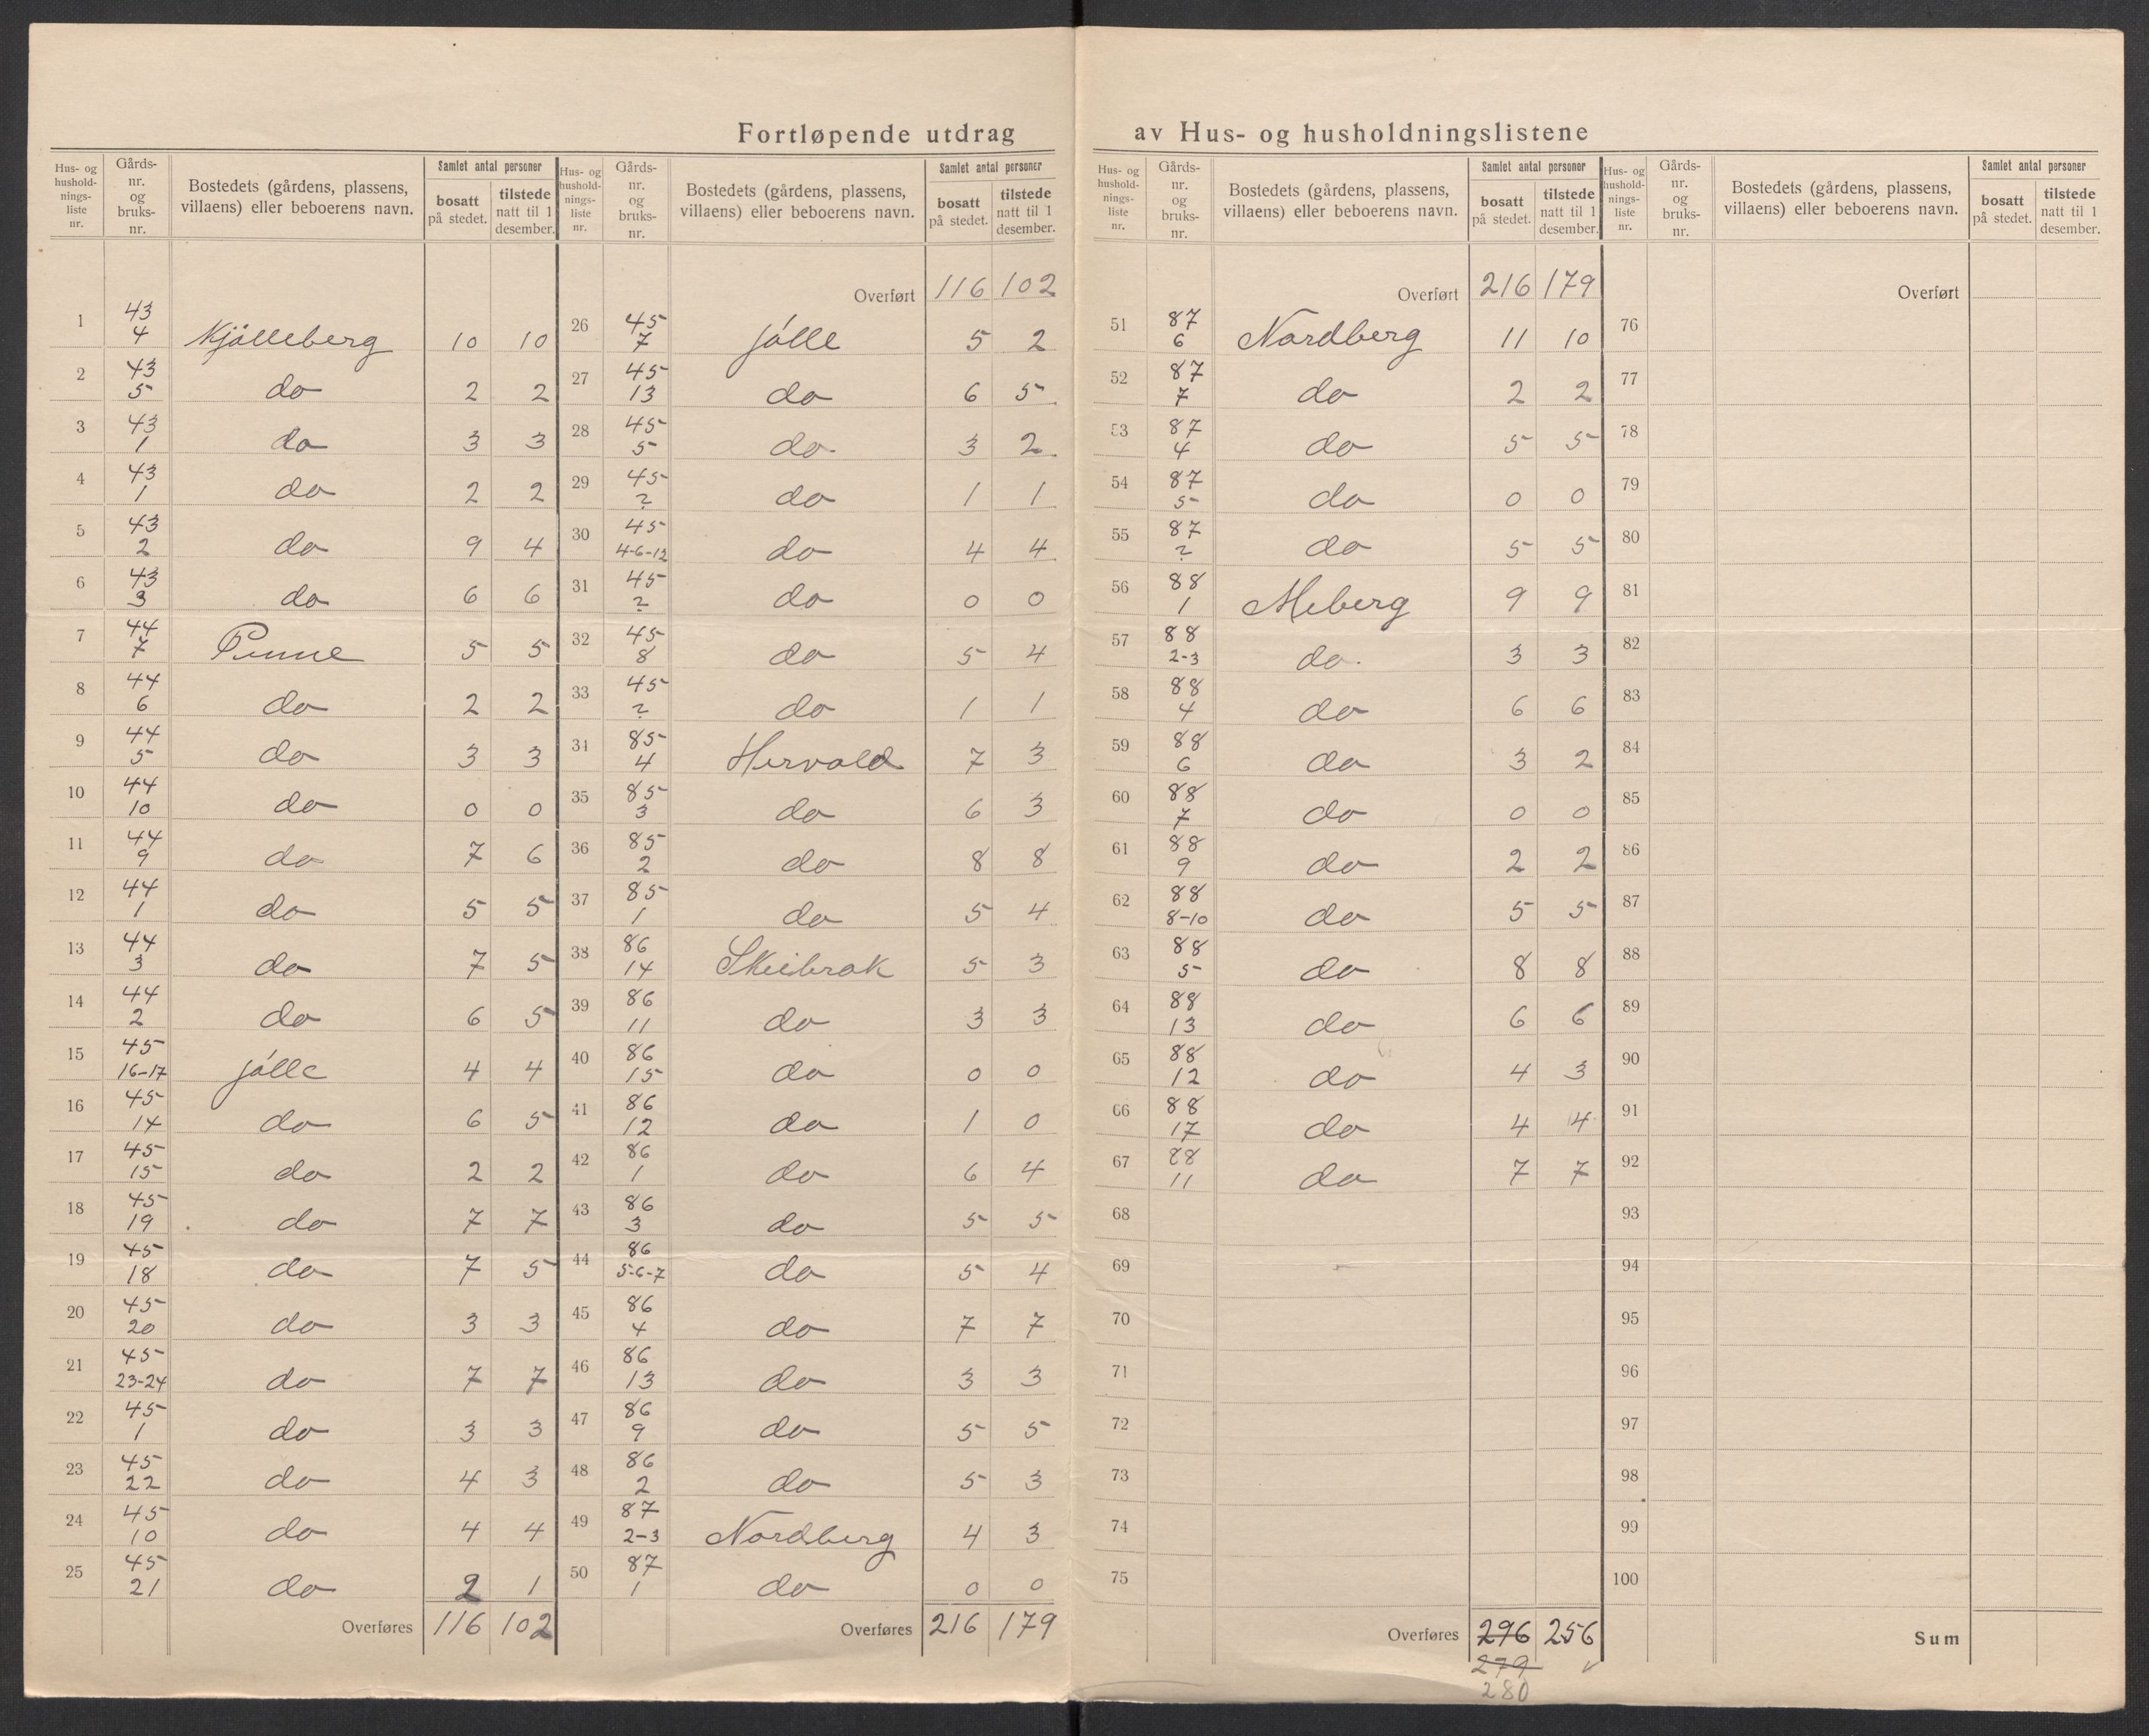 Fortløpende utdrag av Hus- og husholdningslistene
Hus- og husholdnings-liste nr. | Gårds-nr. og bruks-nr. | Bostedets (gårdens, plassens, villaens) eller beboerens navn. | Samlet antal personer bosatt på stedet. | tilstede natt til 1 desember.
1 | 43 4 | Kjølleberg | 10 | 10
2 | 43 5 | do | 2 | 2
3 | 43 1 | do | 3 | 3
4 | 43 1 | do | 2 | 2
5 | 43 2 | do | 9 | 4
6 | 43 3 | do | 6 | 6
7 | 44 7 | Penne | 5 | 5
8 | 44 6 | do | 2 | 2
9 | 44 5 | do | 3 | 3
10 | 44 10 | do | 0 | 0
11 | 44 9 | do | 7 | 6
12 | 44 1 | do | 5 | 5
13 | 44 3 | do | 7 | 5
14 | 44 2 | do | 6 | 5
15 | 45 16-17 | jølle | 4 | 4
16 | 45 14 | do | 6 | 5
17 | 45 15 | do | 2 | 2
18 | 45 19 | do | 7 | 7
19 | 45 18 | do | 7 | 5
20 | 45 20 | do | 3 | 3
21 | 45 23-24 | do | 7 | 7
22 | 45 1 | do | 3 | 3
23 | 45 22 | do | 4 | 3
24 | 45 10 | do | 4 | 4
25 | 45 21 | do | 2 | 1
Overføres | 116 | 102
Hus- og husholdnings-liste nr. | Gårds-nr. og bruks-nr. | Bostedets (gårdens, plassens, villaens) eller beboerens navn. | Samlet antal personer bosatt på stedet. | tilstede natt til 1 desember.
Overført | 116 | 102
26 | 45 7 | jølle | 5 | 2
27 | 45 13 | do | 6 | 5
28 | 45 5 | do | 3 | 2
29 | 45 ? | do | 1 | 1
30 | 45 4-6-12 | do | 4 | 4
31 | 45 ? | do | 0 | 0
32 | 45 8 | do | 5 | 4
33 | 45 ? | do | 1 | 1
34 | 85 4 | Hervold | 7 | 3
35 | 85 3 | do | 6 | 3
36 | 85 2 | do | 8 | 8
37 | 85 1 | do | 5 | 4
38 | 86 14 | Skeibrok | 5 | 3
39 | 86 11 | do | 3 | 3
40 | 86 15 | do | 0 | 0
41 | 86 12 | do | 1 | 0
42 | 86 1 | do | 6 | 4
43 | 86 3 | do | 5 | 5
44 | 86 5-6-7 | do | 5 | 4
45 | 86 4 | do | 7 | 7
46 | 86 13 | do | 3 | 3
47 | 86 9 | do | 5 | 5
48 | 86 2 | do | 5 | 3
49 | 87 2-3 | Nordberg | 4 | 3
50 | 87 1 | do | 0 | 0
Overføres | 216 | 179
Hus- og husholdnings-liste nr. | Gårds-nr. og bruks-nr. | Bostedets (gårdens, plassens, villaens) eller beboerens navn. | Samlet antal personer bosatt på stedet. | tilstede natt til 1 desember.
Overført | 216 | 179
51 | 87 6 | Nordberg | 11 | 10
52 | 87 7 | do | 2 | 2
53 | 87 4 | do | 5 | 5
54 | 87 5 | do | 0 | 0
55 | 87 ? | do | 5 | 5
56 | 88 1 | Meberg | 9 | 9
57 | 88 2-3 | do. | 3 | 3
58 | 88 4 | do | 6 | 6
59 | 88 6 | do | 3 | 2
60 | 88 7 | do | 0 | 0
61 | 88 9 | do | 2 | 2
62 | 88 8-10 | do | 5 | 5
63 | 88 5 | do | 8 | 8
64 | 88 13 | do | 6 | 6
65 | 88 12 | do | 4 | 3
66 | 88 17 | do | 4 | 4
67 | 88 11 | do | 7 | 7
68
69
70
71
72
73
74
75
Overføres | 296 | 256
279
280
Hus- og husholdnings-liste nr. | Gårds-nr. og bruks-nr. | Bostedets (gårdens, plassens, villaens) eller beboerens navn. | Samlet antal personer bosatt på stedet. | tilstede natt til 1 desember.
Overført
76
77
78
79
80
81
82
83
84
85
86
87
88
89
90
91
92
93
94
95
96
97
98
99
100
Sum